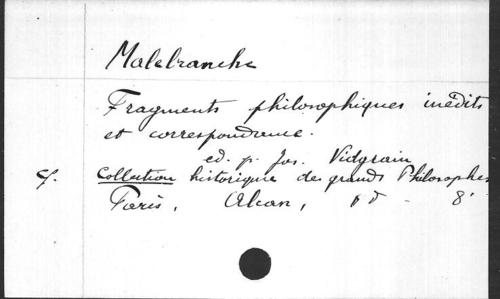 Malebranche
Fragments philosophiques inédits
et correspondance.
ed. p. Jos. Vidgrain
cf. Collection historique des grands Philosophes
Paris, Alcan, 8°